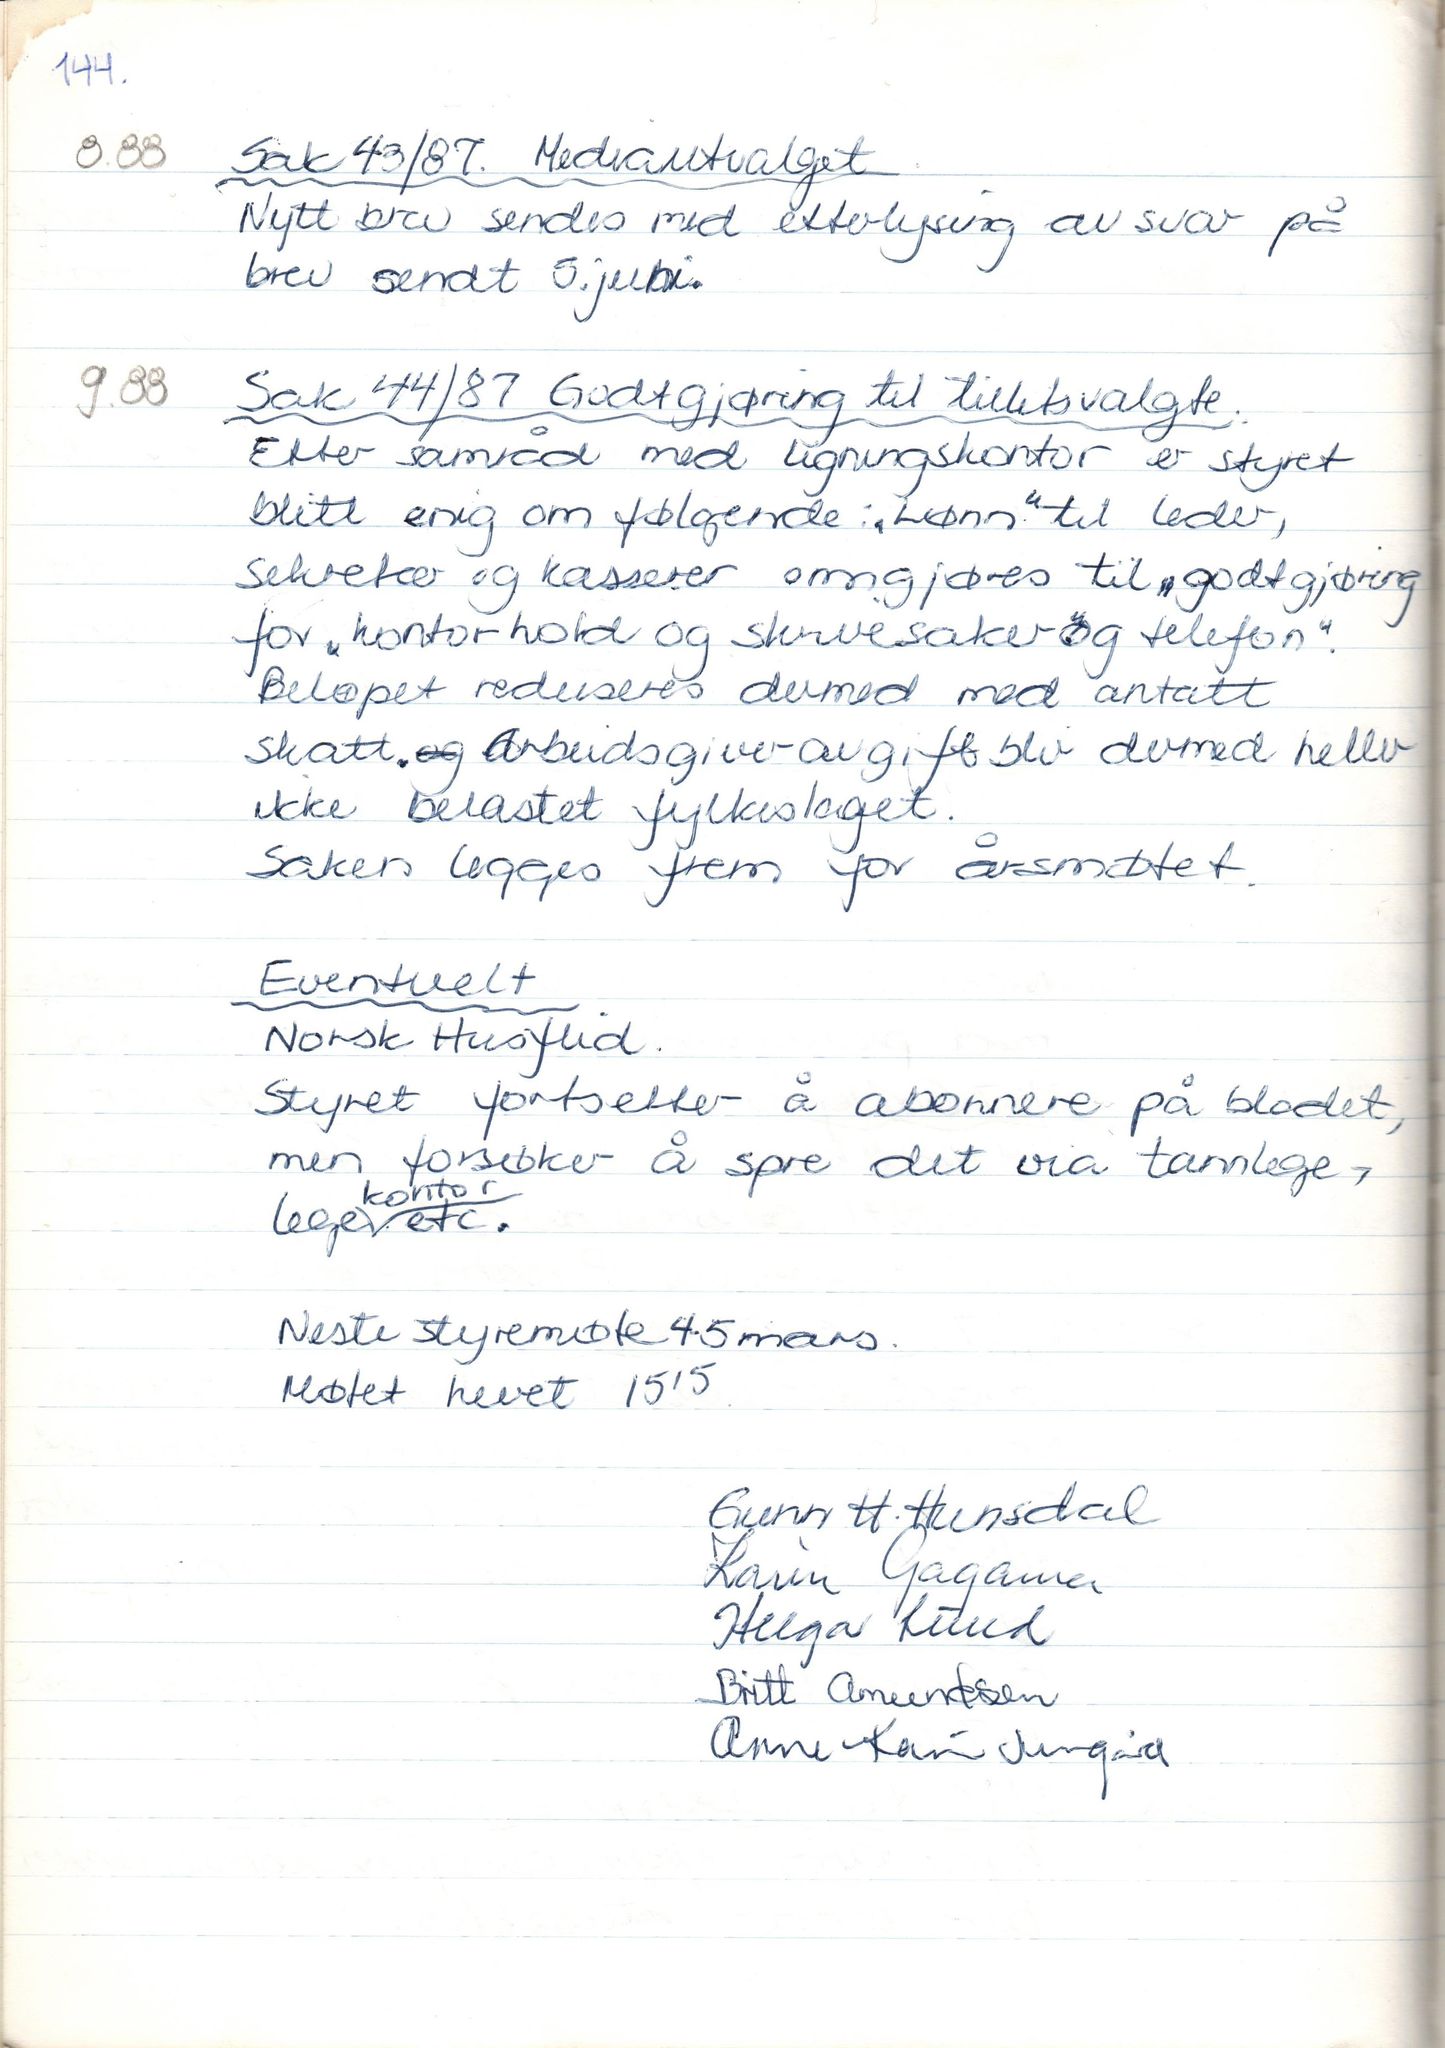 144.
8.88 Sak 43/87. Mediautvalget
Nytt brev sendes med etterlysing av svar på
brev sendt 5. juni.
9.88 Sak 44/87 Godtgjøring til tillitsvalgte.
Etter samråd med ligningskontor er styret
blitt enig om følgende: „Lønn" til leder,
sekretær og kasserer omgjøres til „godtgjøring
for „kontorhold og skrivesaker og telefon".
Beløpet reduseres dermed med antatt
skatt. og Arbeidsgiver-avgift blir dermed heller
ikke belastet fylkeslaget.
Saken legges frem for årsmøtet.
Eventuelt
Norsk Husflid.
Styret fortsetter å abonnere på bladet,
men forsøker å spre det via tannlege-,
legekontor etc.
Neste styremøte 4-5 mars.
Møtet hevet 15¹⁵
Gunn H. Hunsdal
Karin
Helga Lund
Britt Amundsen
Anne Karin